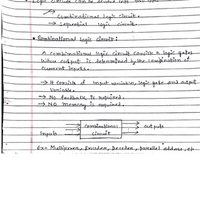 Logic circuits can be divided into two
→ Combinational logic circuit.
→ Sequential logic circuit.
• Combinational Logic Circuit:
A combinational logic circuit consists of logic gates
whose output is determined by the combination of
current inputs.
→ It consists of input variables, logic gates and output
variable.
→ No feedback is required.
→ No memory is required.
Inputs
Combinational
Circuit
outputs
Ex:- Multiplexer, Encoder, Decoder, parallel adder, etc